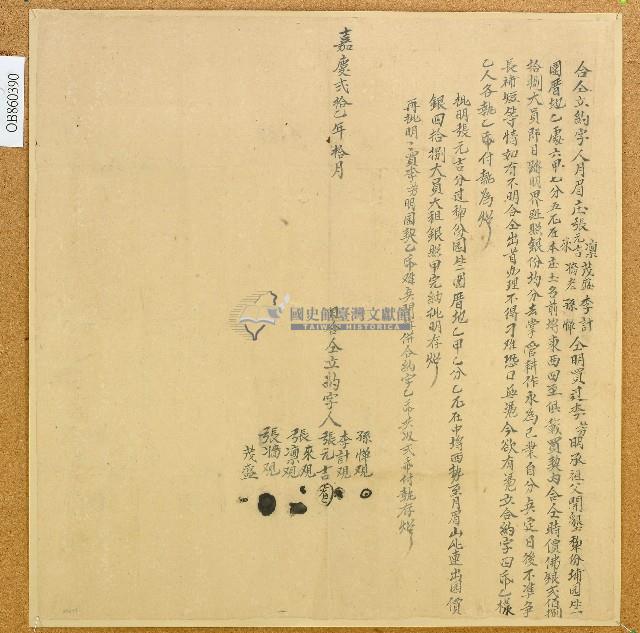 仝立約字人月眉庄張元吉
凜茂盛李計
來將老孫惲
仝明買过李芳明承祖父開墾犂份埔園一
園厝地乙處六甲七分五厘在本庄土名前埒東西四至俱載買契內合仝時價佛銀弍佰捌
拾捌大員即日踏明界址照銀份均分去掌管耕作永為己業自分矣定日後不准爭
長補短等情如有不明合仝出首
理不得刁难恐口無憑今欲有憑立合約字四帋乙樣
乙人各執乙帋付執為炤
批明張元吉分过犂份園一園厝地乙甲乙分乙厘在中埒西勢至月眉山
連出園價
銀四拾捌大員大租銀照甲完納批明存炤
再批明
買李芳明園契乙帋
併合約字乙帋共弍帋付執存炤
嘉慶弍拾乙年拾月
日合仝立約字人
孫惲觀
李計觀
張元吉
張來觀
張凜觀
張將觀
茂盛
國史館臺灣文獻館
TAIWAN HISTORICA
OB860390